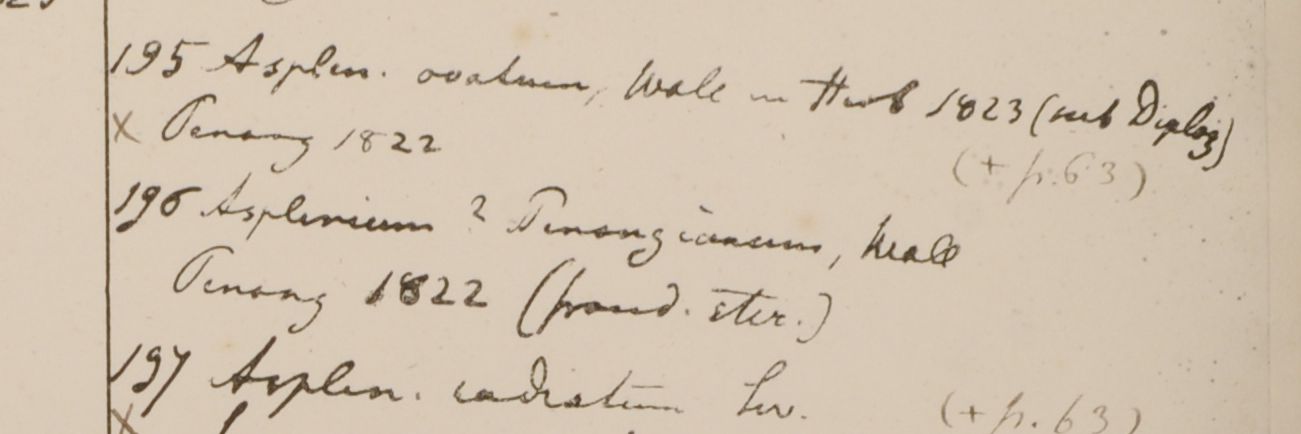 195 Asplen. ovatum, Wall in Herb 1823 (sub Diplaz)
x Penang 1822
(+ p. 63)
196 Asplenium ? Penangianum, Wall
Penang 1822 (frond. ster.)
197 Asplen. radiatum Sw.
(+ p. 63)
x